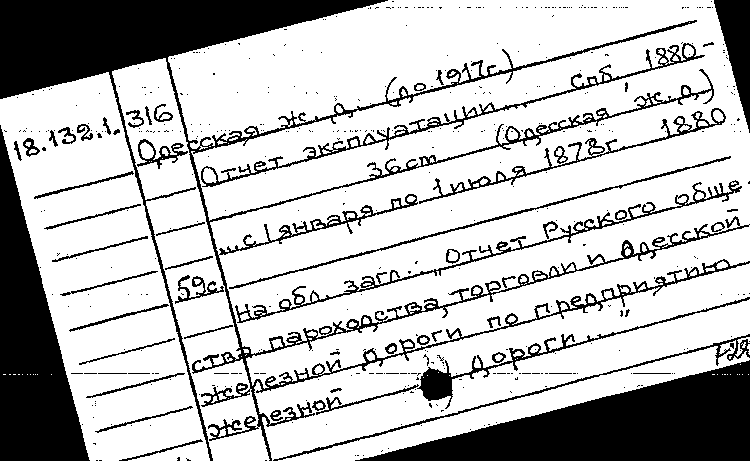 18.132.1. 316
Одесская ж. д. (до 1917г.)
Отчет эксплуатации... Спб, 1880-
36 см (Одесская ж. д.)
...с 1 января по 1 июля 1878г. 1880.
59с.
На обл. загл.: „Отчет Русского обще-
ства пароходства, торговли и Одесской
железной дороги по предприятию
железной дороги..."